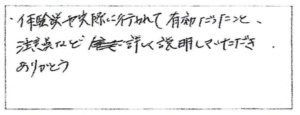 ・体験談や実際に行われて有効だったこと、
注意点など詳しく説明していただき
ありがとう